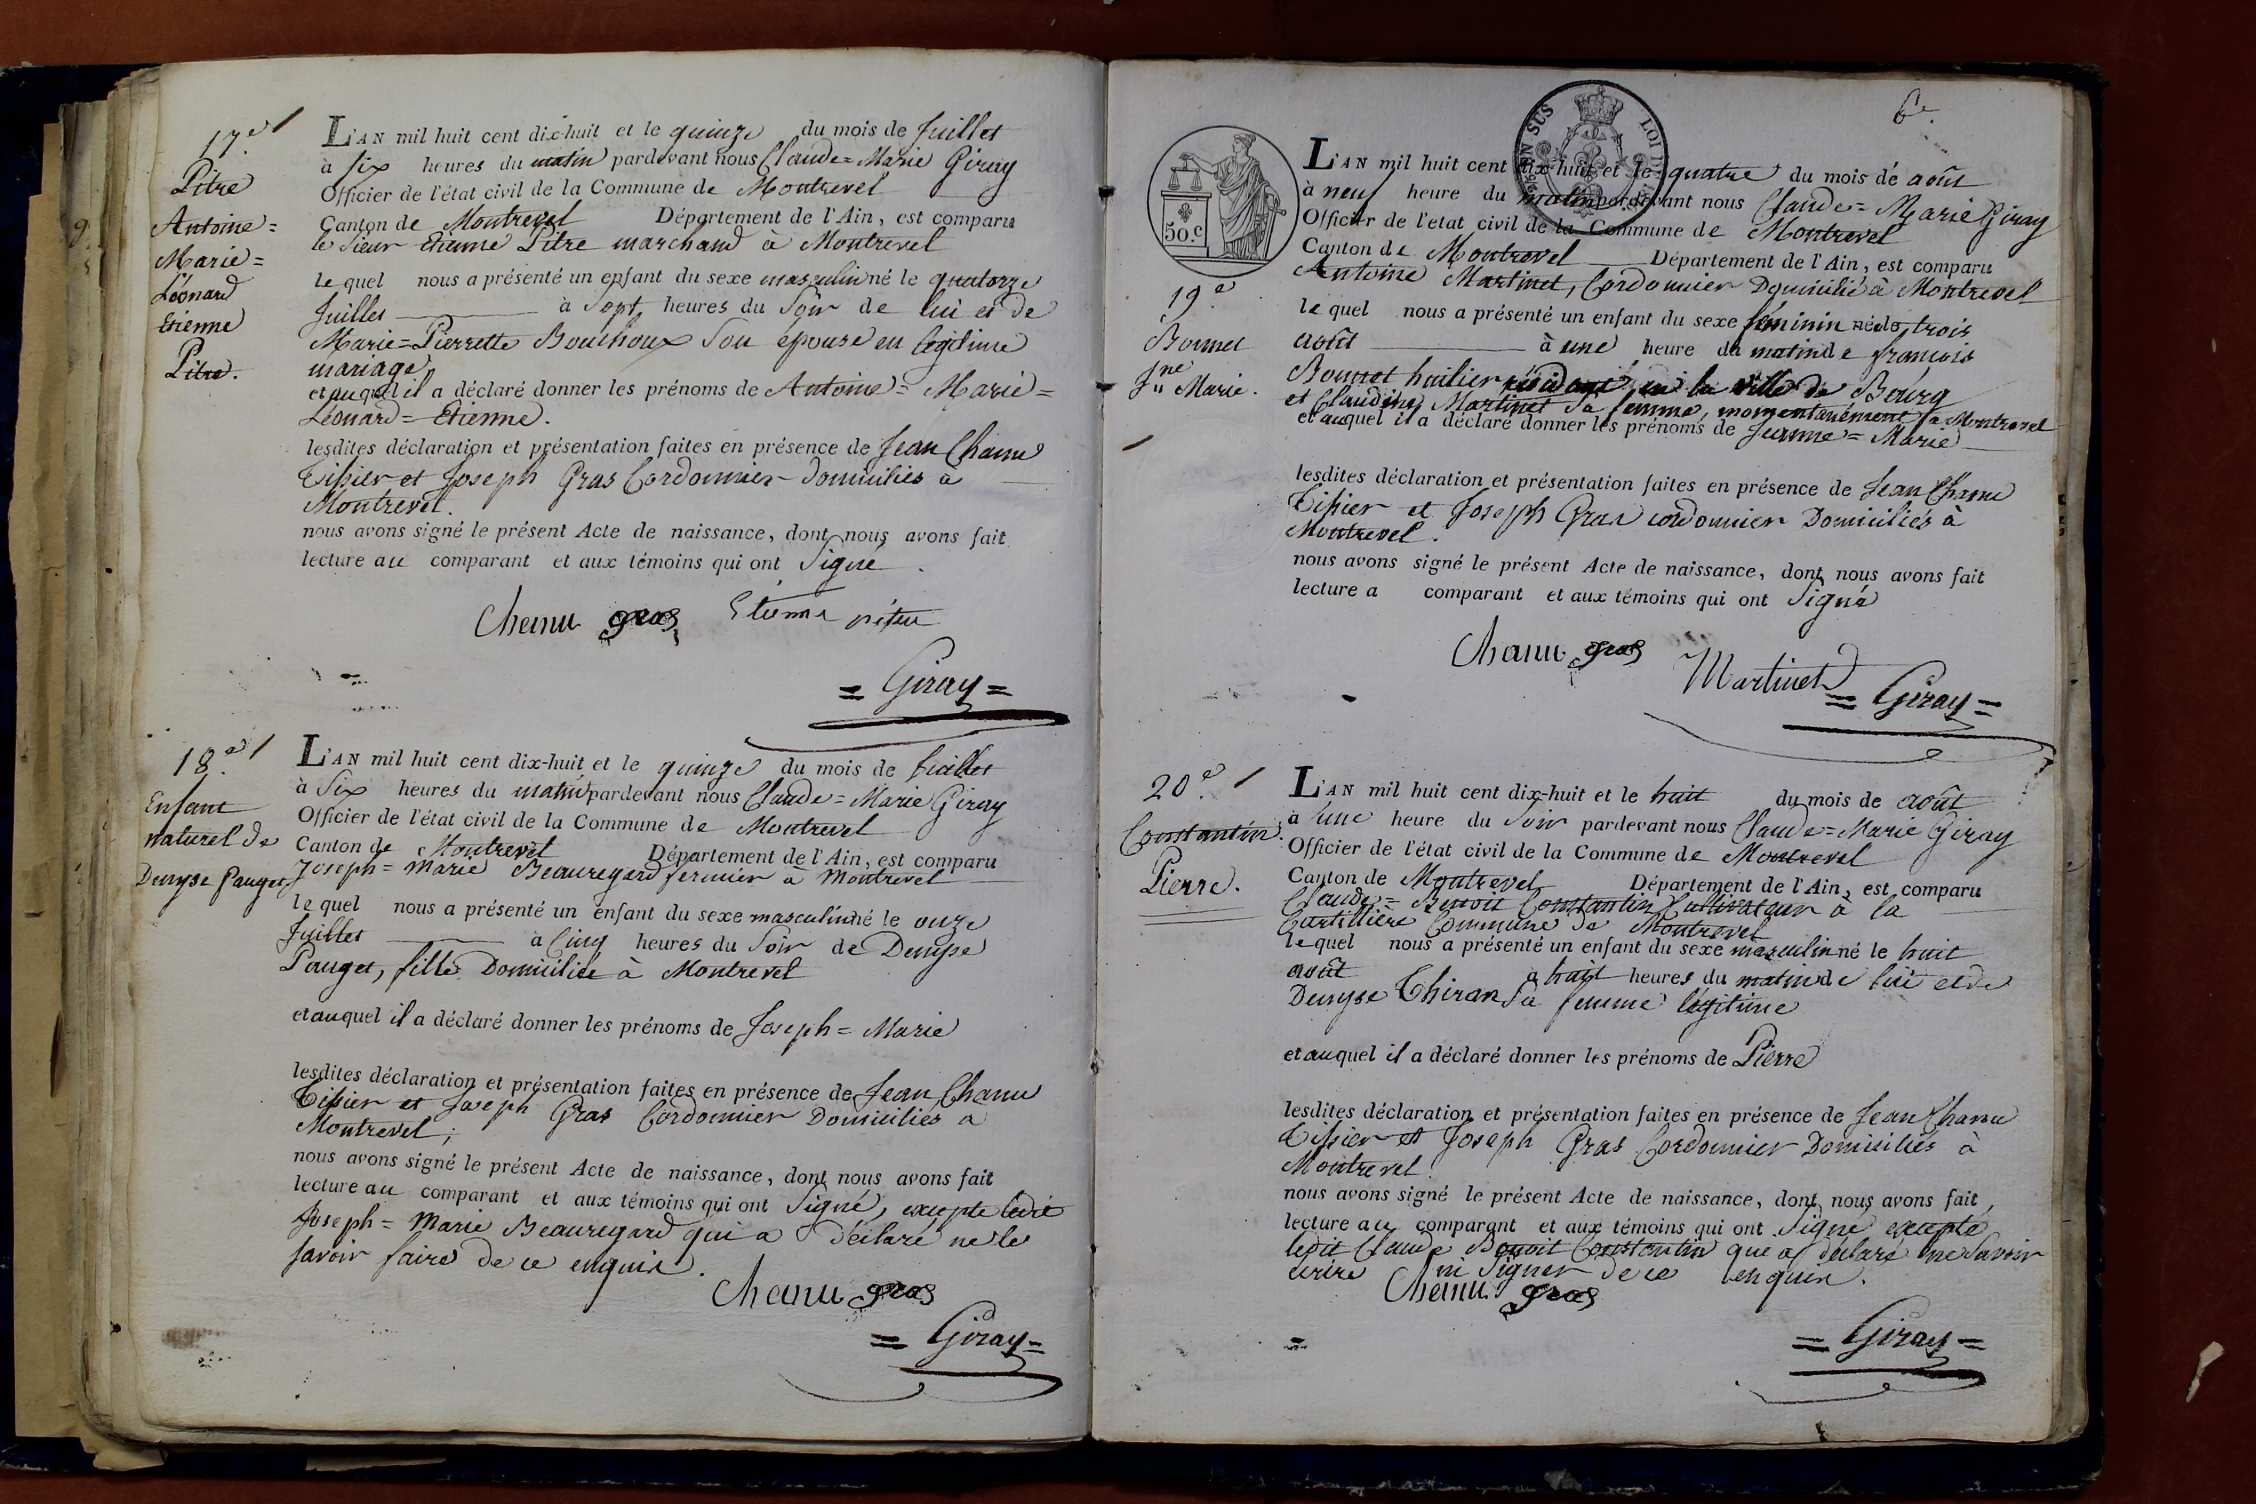 17.e
Pitre
Antoine=
Marie=
Léonard
Etienne
Pitre.
L'AN mil huit cent dix-huit et le quinze du mois de Juillet
à six heures du matin pardevant nous Claude=Marie Giray
Officier de l'état civil de la Commune de Montrevel
Canton de Montrevel Département de l'Ain, est comparu
le Sieur Etienne Pitre marchand à Montrevel
lequel nous a présenté un enfant du sexe masculin né le quatorze
Juillet à Sept heures du Soir de lui et de
Marie=Pierrette Bouchoux Son épouse en légitime
mariage
et auquel il a déclaré donner les prénoms de Antoine=Marie=
Léonard=Etienne.
lesdites déclaration et présentation faites en présence de Jean Chanu
Tissier et Joseph Gras Cordonnier domiciliés à
Montrevel.
nous avons signé le présent Acte de naissance, dont nous avons fait
lecture au comparant et aux témoins qui ont Signé.
Chanu gras Etienne pitre
=Giray=
18.e
Enfant
naturel de
Denyse Pauget
L'AN mil huit cent dix-huit et le quinze du mois de Juillet
à Six heures du matin pardevant nous Claude=Marie Giray
Officier de l'état civil de la Commune de Montrevel
Canton de Montrevel Département de l'Ain, est comparu
Joseph=Marie Beauregard fermier à Montrevel
lequel nous a présenté un enfant du sexe masculin né le onze
Juillet à Cinq heures du Soir de Denyse
Pauget, fille Domiciliée à Montrevel
et auquel il a déclaré donner les prénoms de Joseph=Marie
lesdites déclaration et présentation faites en présence de Jean Chanu
Tissier et Joseph Gras Cordonnier Domiciliés à
Montrevel;
nous avons signé le présent Acte de naissance, dont nous avons fait
lecture au comparant et aux témoins qui ont Signé, excepté ledit
Joseph=Marie Beauregard qui a déclaré ne le
savoir faire de ce enquis.
Chanu gras
=Giray=
6e
50.c
19.e
Bonnet
Jne Marie.
L'AN mil huit cent dix-huit et le quatre du mois de août
à neuf heure du matin pardevant nous Claude=Marie Giray
Officier de l'etat civil de la Commune de Montrevel
Canton de Montrevel Département de l'Ain, est comparu
Antoine Martinet, Cordonnier Domicilié à Montrevel
lequel nous a présenté un enfant du sexe féminin née le trois
août à une heure du matin de françois
Bonnet huilier résidant en la ville de Bourg
et Claudine Martinet Sa femme, momentanément à Montrevel
et auquel il a déclaré donner les prénoms de Jeanne=Marie
lesdites déclaration et présentation faites en présence de Jean Chanu
Tissier et Joseph Gras cordonnier Domiciliés à
Montrevel.
nous avons signé le présent Acte de naissance, dont nous avons fait
lecture a comparant et aux témoins qui ont Signé
Chanu gras Martinet
=Giray=
20.e
Constantin.
Pierre.
L'AN mil huit cent dix-huit et le huit du mois de août
à une heure du Soir pardevant nous Claude=Marie Giray
Officier de l'état civil de la Commune de Montrevel
Canton de Montrevel Département de l'Ain, est comparu
Claude=Benoit Constantin Cultivateur à la
Curtillière Commune de Montrevel
lequel nous a présenté un enfant du sexe masculin né le huit
août à huit heures du matin de lui et de
Denyse Thiran Sa femme légitime
et auquel il a déclaré donner les prénoms de Pierre
lesdites déclaration et présentation faites en présence de Jean Chanu
Tissier et Joseph Gras Cordonnier Domiciliés à
Montrevel
nous avons signé le présent Acte de naissance, dont nous avons fait
lecture au comparant et aux témoins qui ont Signé excepté
ledit Claude Benoit Constantin que a déclaré ne Savoir
écrire ni Signer de ce enquis.
Chanu gras
=Giray=